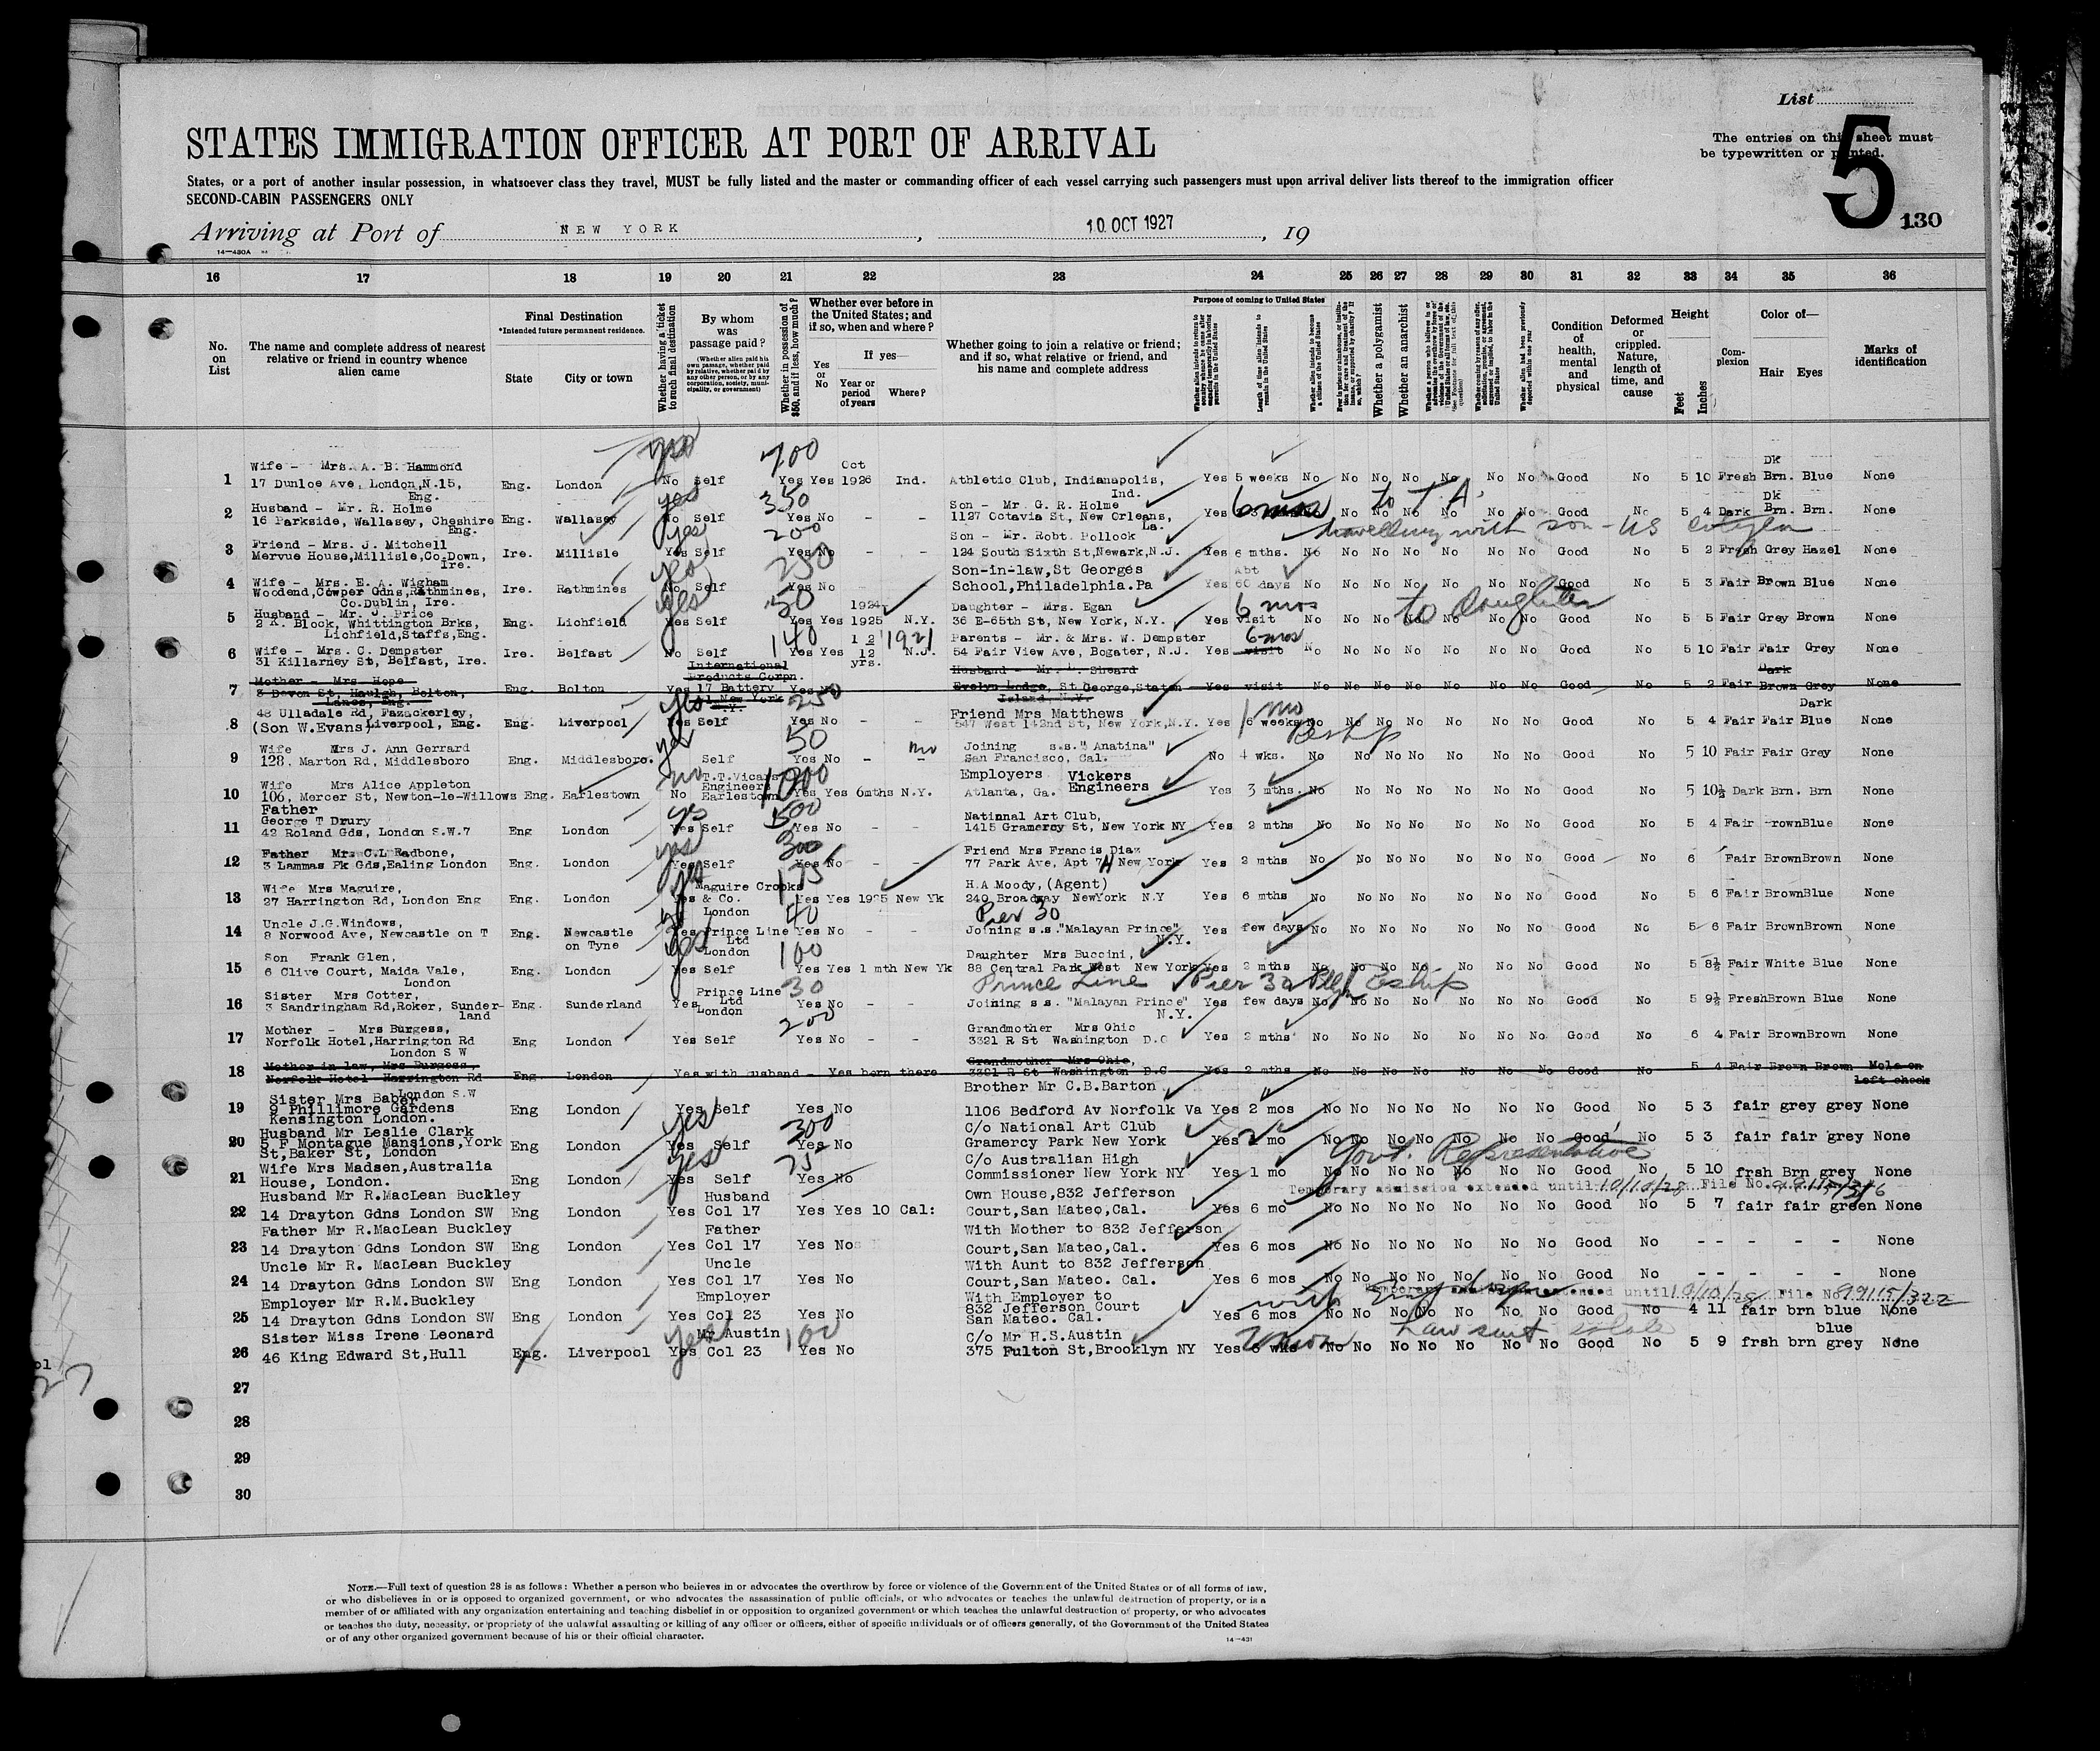 List
STATES IMMIGRATION OFFICER AT PORT OF ARRIVAL
The entries on this sheet must
be typewritten or printed.
5
130
States, or a port of another insular possession, in whatsoever class they travel, MUST be fully listed and the master or commanding officer of each vessel carrying such passengers must upon arrival deliver lists thereof to the immigration officer
SECOND-CABIN PASSENGERS ONLY
Arriving at Port of NEW YORK, 10 OCT 1927, 19
14-430A
16 17 18 19 20 21 22 23 24 25 26 27 28 29 30 31 32 33 34 35 36
No. on List
The name and complete address of nearest relative or friend in country whence alien came
Final Destination
*Intended future permanent residence.
State
City or town
Whether having a ticket to such final destination
By whom was passage paid?
(Whether alien paid his own passage, whether paid by relative, whether paid by any other person, or by any corporation, society, municipality, or government)
Whether in possession of $50, and if less, how much?
Whether ever before in the United States; and if so, when and where?
Yes or No
If yes—
Year or period of years
Where?
Whether going to join a relative or friend; and if so, what relative or friend, and his name and complete address
Purpose of coming to United States
Length of time alien intends to remain in the United States
Whether alien intends to become a citizen of the United States
Whether a polygamist
Whether an anarchist
Condition of health, mental and physical
Deformed or crippled. Nature, length of time, and cause
Height
Feet
Inches
Complexion
Color of—
Hair Eyes
Marks of identification
yes 700 Oct Dk
Wife - Mrs. A. B. Hammond
1 17 Dunloe Ave, London, N.15, Eng. London No Self Yes Yes 1926 Ind. Athletic Club, Indianapolis, Yes 5 weeks No No No No No No No Good No 5 10 Fresh Brn. Blue None
Eng. Ind.
yes 350 6 mos to T.A. Dk
Husband - Mr. R. Holme Son - Mr. G. R. Holme
2 16 Parkside, Wallasey, Cheshire Eng. Wallasey No Self Yes No - - 1127 Octavia St, New Orleans, Yes No No No No No No Good No 5 4 Dark Brn. Brn. None
Eng. La.
yes 200 travelling with son - US citizen
Friend - Mrs. J. Mitchell Son - Mr. Robt. Pollock
3 Mervue House, Millisle, Co.Down, Ire. Millisle Yes Self Yes No - - 124 South Sixth St, Newark, N.J. Yes 6 mths. No No No No No No No Good No 5 2 Fresh Grey Hazel None
Ire.
yes 250
Wife - Mrs. E. A. Wigham Son-in-law, St Georges Abt
4 Woodend, Cowper Gdns, Rathmines, Ire. Rathmines No Self Yes No - School, Philadelphia. Pa Yes 60 days No No No No No No No Good No 5 3 Fair Brown Blue None
Co.Dublin, Ire.
yes 50 1924 6 mos to Daughter
Husband - Mr. J. Price Daughter - Mrs. Egan
5 2 K. Block, Whittington Brks, Eng. Lichfield Yes Self Yes Yes 1925 N.Y. 36 E-65th St, New York, N.Y. Yes visit No No No No No No No Good No 5 5 Fair Grey Brown None
Lichfield, Staffs, Eng.
140 1921 6 mos
Wife - Mrs. C. Dempster Parents - Mr. & Mrs. W. Dempster
6 31 Killarney St, Belfast, Ire. Ire. Belfast No Self Yes Yes 12 yrs. N.J. 54 Fair View Ave, Bogater, N.J. Yes visit No No No No No No No Good No 5 10 Fair Fair Grey None
International Products Corpn.
Mother - Mrs. Hope Husband - Mr. Sheard Dark
7 3 Devon St, Haulgh, Bolton, Eng. Bolton Yes 17 Battery Yes No Evelyn Lodge, St George, Staten Yes visit No No No No No No No Good No 5 2 Fair Brown Grey None
Lancs, Eng. New York N.Y. Island, N.Y.
yes 250 1 mo Dark
48 Ulladale Rd, Fazackerley, Friend Mrs Matthews
8 (Son W.Evans) Liverpool, Eng. Eng. Liverpool Yes Self Yes No - - 547 West 142nd St, New York, N.Y. Yes 6 weeks No No No No No No No Good No 5 4 Fair Fair Blue None
yes 50 no Reship
Wife Mrs J. Ann Gerrard Joining s.s. "Anatina"
9 128, Marton Rd, Middlesboro Eng. Middlesboro. Self Yes No - - San Francisco, Cal. No 4 wks. No No No No No No No Good No 5 10 Fair Fair Grey None
no
Wife Mrs Alice Appleton T.T.Vicars Engineers Employers Vickers
10 106, Mercer St, Newton-le-Willows Eng. Earlestown No Earlestown Yes Yes 6mths N.Y. Atlanta, Ga. Engineers Yes 3 mths. No No No No No No No Good No 5 10½ Dark Brn. Brn None
yes 500
Father
George T Drury National Art Club,
11 42 Roland Gds, London S.W.7 Eng London Yes Self Yes No - - 1415 Gramercy St, New York NY Yes 2 mths No No No No No No No Good No 5 4 Fair rown Blue None
yes 300
Father Mr. C.L Radbone, Friend Mrs Francis Diaz
12 3 Lammas Pk Gds, Ealing London Eng. London Yes Self Yes No - - 77 Park Ave, Apt 7H New York Yes 2 mths No No No No No No No Good No 6 Fair Brown Brown None
yes 175
Wife Mrs Maguire, Maguire Crooks H.A Moody, (Agent)
13 27 Harrington Rd, London Eng Eng. London Yes & Co. London Yes Yes 1925 New Yk 240 Broadway NewYork N.Y Yes 6 mths No No No No No No No Good No 5 6 Fair Brown Blue None
yes 40 Pier 30
Uncle J.G.Windows,
14 8 Norwood Ave, Newcastle on T Eng. Newcastle on Tyne Yes Prince Line Ltd London Yes No - - Joining s.s."Malayan Prince" N.Y. Yes few days No No No No No No No Good No 5 6 Fair Brown Brown None
yes 100
Son Frank Glen, Daughter Mrs Buccini,
15 6 Clive Court, Maida Vale, London Eng. London Yes Self Yes Yes 1 mth New Yk 88 Central Park West New York Yes 2 mths No No No No No No No Good No 5 8½ Fair White Blue None
30 Prince Line Pier 30 Reship
Sister Mrs Cotter, Prince Line
16 3 Sandringham Rd, Roker, Sunderland Eng. Sunderland Yes Ltd London Yes No - - Joining s.s. "Malayan Prince" N.Y. Yes few days No No No No No No No Good No 5 9½ Fresh Brown Blue None
200
Mother - Mrs Burgess, Grandmother Mrs Ohio
17 Norfolk Hotel, Harrington Rd Eng London Yes Self Yes No - - 3321 R St Washington D.C Yes 2 mths No No No No No No No Good No 6 4 Fair Brown Brown None
London S W
Mother in law, Mrs Burgess, Grandmother Mrs Ohio,
18 Norfolk Hotel Harrington Rd Eng London Yes with husband - Yes born there 3321 R St Washington D.C Yes 2 mths No No No No No No No Good No 5 4 Fair Brown Brown Mole on left cheek
London S.W
Sister Mrs Baber Brother Mr C.B.Barton
19 9 Phillimore Gardens Eng London Yes Self Yes No 1106 Bedford Av Norfolk Va Yes 2 mos No No No No No No No Good No 5 3 fair grey grey None
Kensington London.
yes 300
Husband Mr Leslie Clark C/o National Art Club
20 5 F Montague Mansions, York Eng London Yes Self Yes No Gramercy Park New York Yes 2 mo No No No No No No No Good No 5 3 fair fair grey None
St, Baker St, London
yes 75 Govt. Representative
Wife Mrs Madsen, Australia C/o Australian High
21 House, London. Eng London Yes Self Yes No Commissioner New York NY Yes 1 mo No No No No No No No Good No 5 10 frsh Brn grey None
Temporary admission extended until 10/10/28 File No.
Husband Mr R.MacLean Buckley Husband Own House, 832 Jefferson
22 14 Drayton Gdns London SW Eng London Yes Col 17 Yes Yes 10 Cal: Court, San Mateo, Cal. Yes 6 mo No No No No No No No Good No 5 7 fair fair green None
Father Mr R.MacLean Buckley Father With Mother to 832 Jefferson
23 14 Drayton Gdns London SW Eng London Yes Col 17 Yes No Court, San Mateo, Cal. Yes 6 mos No No No No No No No Good No - - - - - None
Uncle Mr R. MacLean Buckley Uncle With Aunt to 832 Jefferson
24 14 Drayton Gdns London SW Eng London Yes Col 17 Yes No Court, San Mateo. Cal. Yes 6 mos No No No No No No No Good No - - - - - None
with Employer extended until 10/10/28 File No 99115/322
Employer Mr R.M.Buckley Employer With Employer to
25 14 Drayton Gdns London SW Eng London Yes Col 23 Yes No 832 Jefferson Court San Mateo. Cal. Yes 6 mos No No No No No No No Good No 4 11 fair brn blue None
yes 100 2 mos Law suit blue
Sister Miss Irene Leonard Mr Austin C/o Mr H.S.Austin
26 46 King Edward St, Hull Eng. Liverpool Yes Col 23 Yes No 375 Fulton St, Brooklyn NY Yes 6 wks No No No No No No No Good No 5 9 frsh brn grey None
27
28
29
30
NOTE.—Full text of question 28 is as follows: Whether a person who believes in or advocates the overthrow by force or violence of the Government of the United States or of all forms of law,
or who disbelieves in or is opposed to organized government, or who advocates the assassination of public officials, or who advocates or teaches the unlawful destruction of property, or is a
member of or affiliated with any organization entertaining and teaching disbelief in or opposition to organized government or which teaches the unlawful destruction of property, or who advocates
or teaches the duty, necessity, or propriety of the unlawful assaulting or killing of any officer or officers, either of specific individuals or of officers generally, of the Government of the United States
or of any other organized government because of his or their official character.
14-431